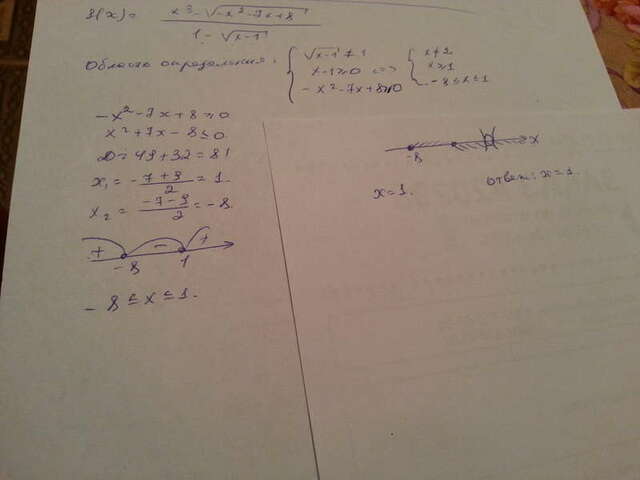 f(x) = (x³ - √(-x² - 7x + 8)) / (1 - √(x-1))
Область определения: { √(x-1) ≠ 1 ; x-1 ≥ 0 ; -x² - 7x + 8 ≥ 0 <=> { x ≠ 2 ; x ≥ 1 ; -8 ≤ x ≤ 1
-x² - 7x + 8 ≥ 0
x² + 7x - 8 ≤ 0
D = 49 + 32 = 81
x₁ = (-7+9)/2 = 1.
x₂ = (-7-9)/2 = -8.
+ - +
-8 1
-8 ≤ x ≤ 1.
-8 x
x = 1.
ответ: x = 1.